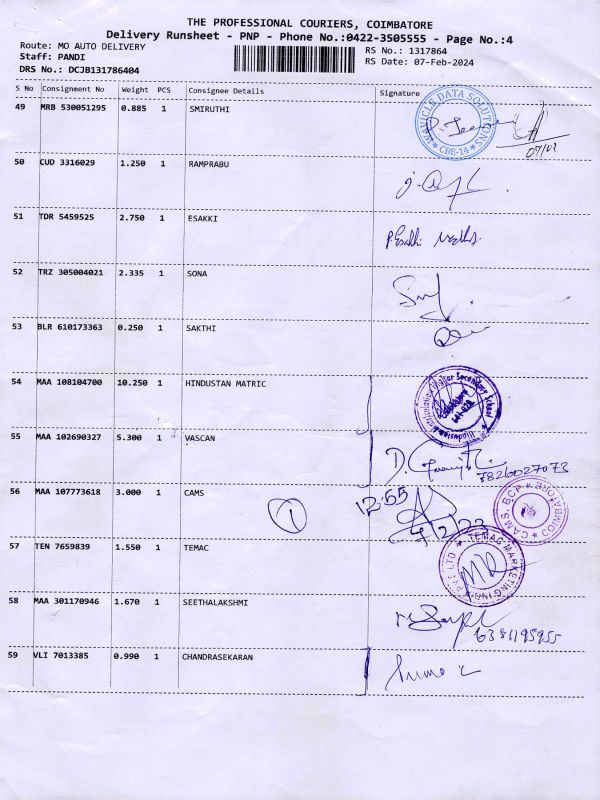 THE PROFESSIONAL COURIERS, COIMBATORE
Delivery Runsheet - PNP - Phone No.:0422-3505555 - Page No.:4
Route: MO AUTO DELIVERY
RS No.: 1317864
Staff: PANDI
RS Date: 07-Feb-2024
DRS No.: DCJB131786404
S No Consignment No Weight PCS Consignee Details Signature
49 MRB 530051295 0.885 1 SMIRUTHI
DATA SOLUTIONS
CBE-14
07/02
50 CUD 3316029 1.250 1 RAMPRABU
51 TDR 5459525 2.750 1 ESAKKI
P. Esakki
52 TRZ 305004021 2.335 1 SONA
53 BLR 610173363 0.250 1 SAKTHI
54 MAA 108104700 10.250 1 HINDUSTAN MATRIC
55 MAA 102690327 5.300 1 VASCAN
7826027073
56 MAA 107773618 3.000 1 CAMS
1
12:55
CAMS. BCP COIMBATORE
57 TEN 7659839 1.550 1 TEMAC
TEMAC MARKETING PTE LTD
58 MAA 301170946 1.670 1 SEETHALAKSHMI
6381195955
59 VLI 7013385 0.990 1 CHANDRASEKARAN